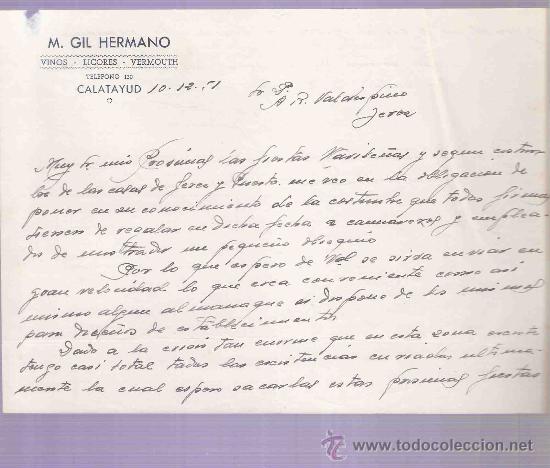 M. GIL HERMANO
VINOS - LICORES - VERMOUTH
TELEFONO 130
CALATAYUD 10-12-51
Sr. D.
A. R. Valdespino
Jerez
Muy Sr. mio Proximas las fiestas Navideñas y segun costum
bre de las casas de Jerez y Puerto me veo en la obligacion de
poner en su conocimiento de la costumbre que todas firmas
tienen de regalar en dicha fecha a camareros y emplea
dos de mostrador un pequeño obsequio
Por lo que espero de Vd se sirva enviar en
gran velocidad lo que crea conveniente como asi
mismo algun almanaque si dispone de los mismos
para dueños de establecimientos
Dado a la crisis tan enorme que en esta zona
tengo casi total todas las existencias enviadas ultima
mente la cual espero sacarlas estas proximas fiestas
www.todocoleccion.net